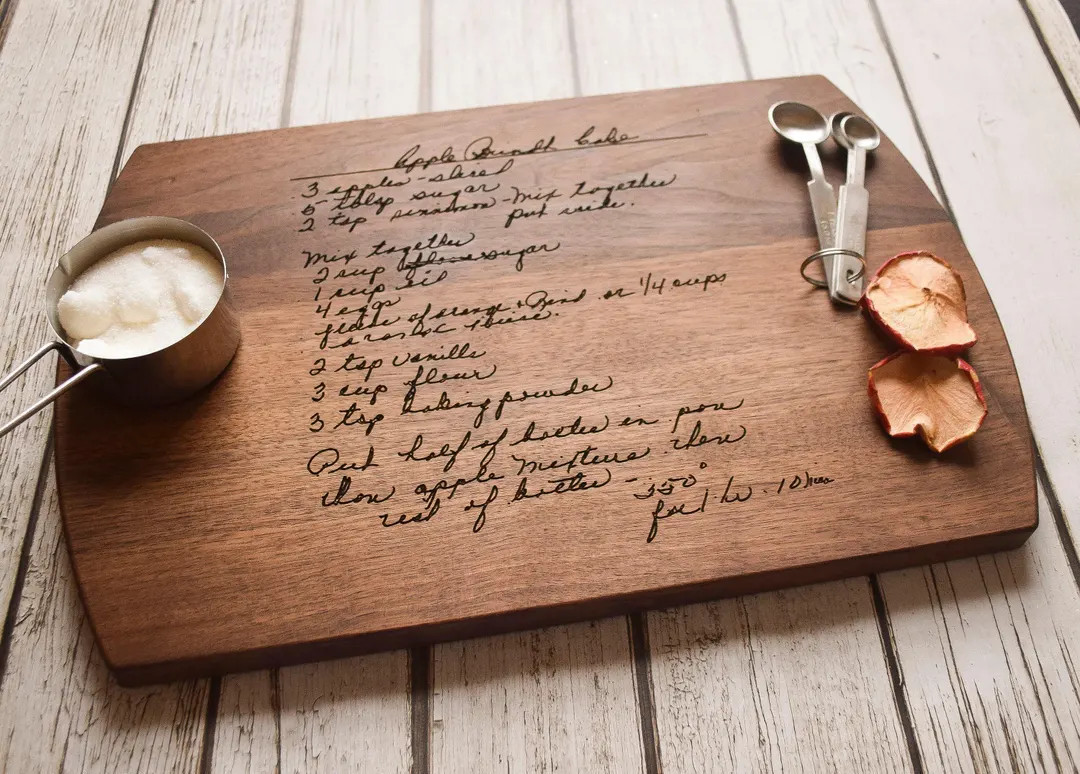 Apple Bundt Cake
3 apples - sliced
5 tblsp sugar
2 tsp cinnamon - Mix together
put aside.
Mix together
2 cup sugar
1 cup oil
4 eggs
juice of orange + Rind or 1/4 cups
orange juice.
2 tsp vanilla
3 cup flour
3 tsp baking powder
Put half of batter in pan
then apple mixture then
rest of batter -
350°
for 1 hr. 10